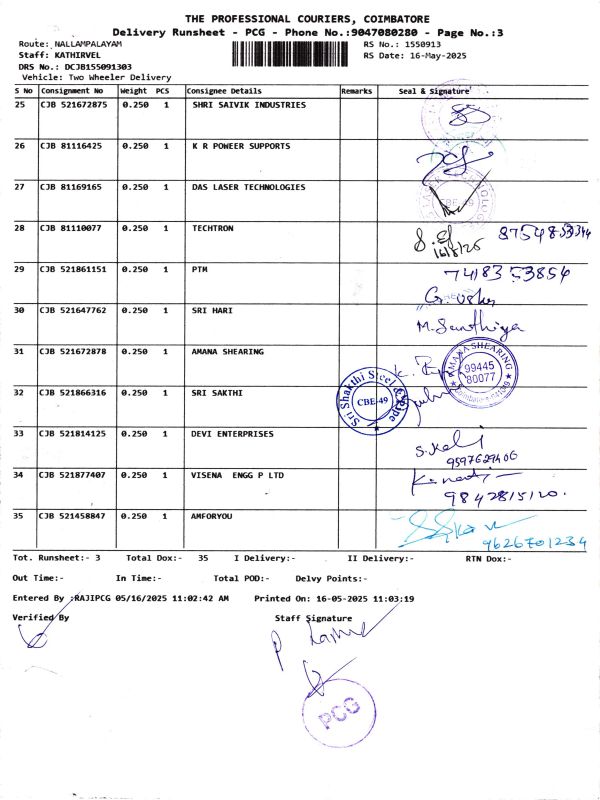 THE PROFESSIONAL COURIERS, COIMBATORE
Delivery Runsheet - PCG - Phone No.:9047080280 - Page No.:3
Route: NALLAMPALAYAM RS No.: 1550913
Staff: KATHIRVEL RS Date: 16-May-2025
DRS No.: DCJB155091303
Vehicle: Two Wheeler Delivery
S No Consignment No Weight PCS Consignee Details Remarks Seal & Signature
25 CJB 521672875 0.250 1 SHRI SAIVIK INDUSTRIES
26 CJB 81116425 0.250 1 K R POWEER SUPPORTS
27 CJB 81169165 0.250 1 DAS LASER TECHNOLOGIES
28 CJB 81110077 0.250 1 TECHTRON
29 CJB 521861151 0.250 1 PTM 7418353854
30 CJB 521647762 0.250 1 SRI HARI M. Santhiya
31 CJB 521672878 0.250 1 AMANA SHEARING
AMANA SHEARING 99445 80077
32 CJB 521866316 0.250 1 SRI SAKTHI
Sri Shakthi Steel & Pipe CBE-49
33 CJB 521814125 0.250 1 DEVI ENTERPRISES S. Kali
9597629406
34 CJB 521877407 0.250 1 VISENA ENGG P LTD
9842815120.
35 CJB 521458847 0.250 1 AMFORYOU
9626701234
Tot. Runsheet:- 3 Total Dox:- 35 I Delivery:- II Delivery:- RTN Dox:-
Out Time:- In Time:- Total POD:- Delvy Points:-
Entered By :RAJIPCG 05/16/2025 11:02:42 AM Printed On: 16-05-2025 11:03:19
Verified By Staff Signature
PCG